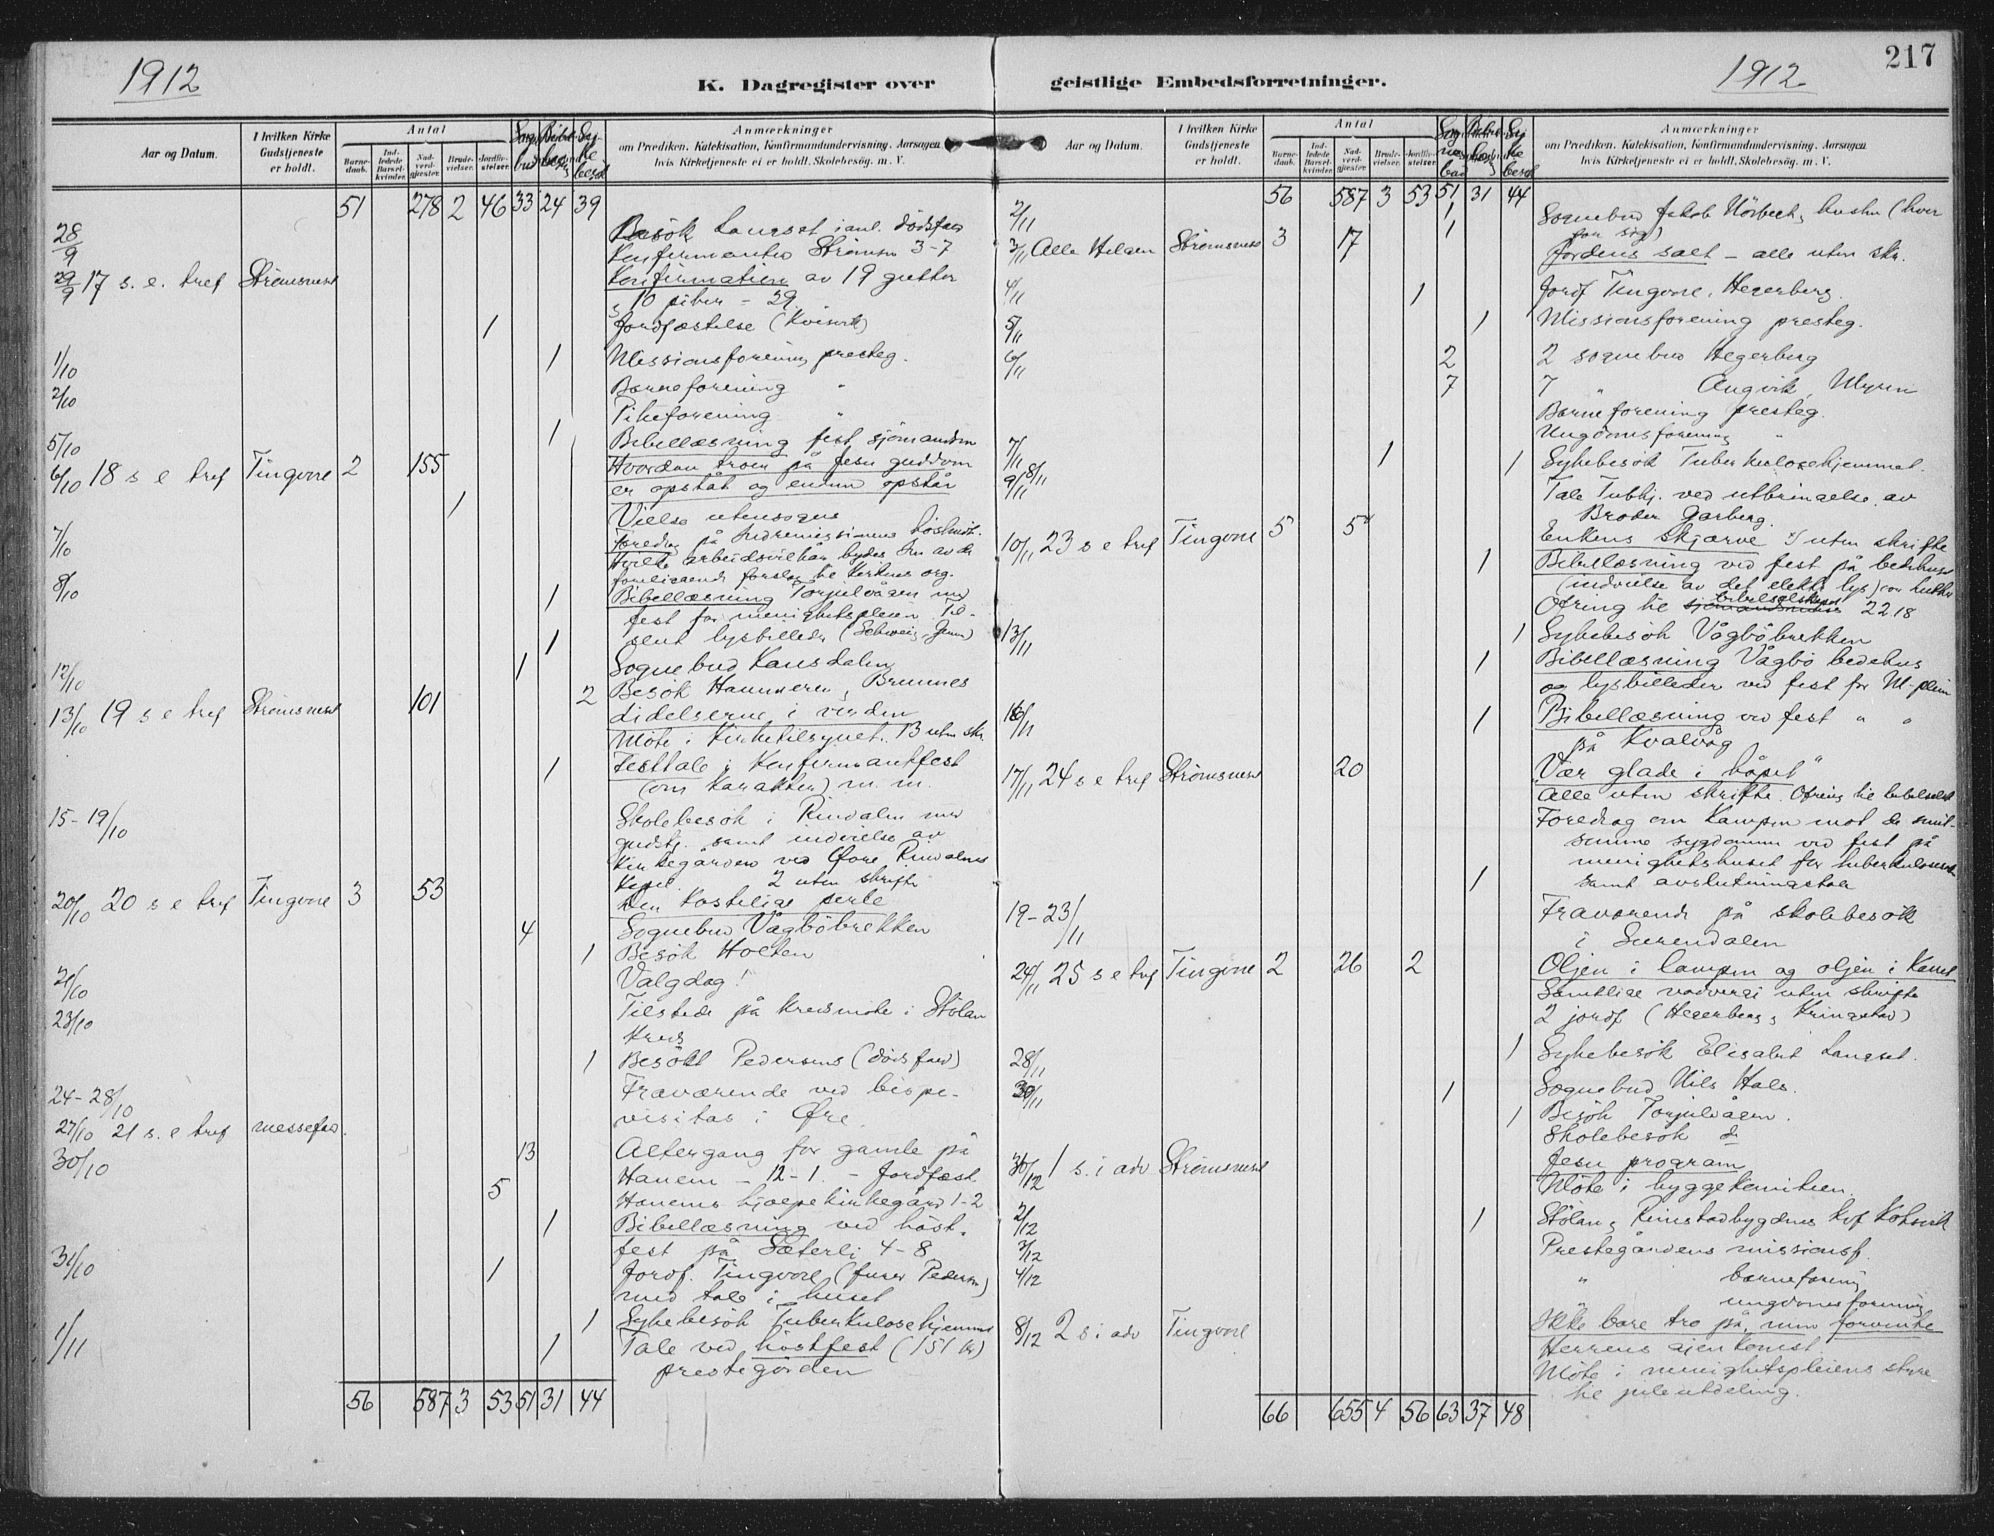 1912
K. Dagregister over
Aar og Datum.
I hvilken Kirke Gudstjeneste er holdt.
Antal
Barnedaab.
Indledede Barselkvinder.
Nadverdgjester.
Brudevielser.
Jordfæstelser.
Sognebud
Bibel
Sykebesøk
Anmærkninger
om Prædiken. Katekisation, Konfirmandundervisning. Aarsagen
hvis Kirketjeneste ei er holdt. Skolebesøg. m. V.
51 278 2 46 33 24 39
28/9 Besök Langset i anl. dødsfald
Konfirmanter Strömsn 3-7
29/9 17 s. e. tref Strömsnes Konfirmation av 19 gutter
10 piker = 29
1 Jordfæstelse (Kvisvik)
1/10 1 Missionsforening presteg.
2/10 Barneforening "
Pikeforening "
5/10 1 Bibellæsning fest sjömandsm
6/10 18 s e tref Tingvoll 2 155 Hvordan troen på Jesu guddom
er opståt og ennu opstår
1 Vielse utensogns
7/10 Foredrag på Indremissionens höstmöt.
Hvilke arbeidsvilkår bydes den av de
foreliggende forslag til kirkens org.
8/10 1 Bibellæsning Torjulvågen ved
fest for menighetspleien Til-
1 slut lysbilleder (Schweiz, Jerus)
12/10 1 Sognebud Hansdalen
2 Besök Hammeren, Bremnes
13/10 19 s e tref Strömsnes 101 Lidelserne i verden
Möte i Kirketilsynet. 13 uten skr.
1 Festtale i Konfirmantfest
(om karakter) m. m.
15-19/10 Skolebesök i Rindalen med
gudstj. samt indvielse av
kirkegården ved Øvre Rindalens
kapel. 2 uten skrifte
20/10 20 s e tref Tingvoll 3 53 Den kostelige perle
4 Sognebud Vågböbrekken
1 Besök Holten
21/10 Valgdag!
23/10 Tilstede på kredsmöte i Stölan
kreds
1 Besökt Pedersens (dödsfald)
24-28/10 Fraværende ved bispe-
visitas i Øre.
27/10 21 s. e tref messefald.
30/10 13 Altergang for gamle på
Hanem - 12-1. - Jordfæst.
5 Hanems hjælpekirkegård 1-2
1 Bibellæsning ved höst-
fest på Sæterli 4-8
31/10 1 Jordf. Tingvoll (fuer Pedersen)
med tale i huset
1 Sykebesök Tuberkulosehjemmet
1/11 1 Tale ved höstfest (151 kr)
prestegården
56 587 3 53 51 31 44
geistlige Embedsforretninger.
1912
217
Aar og Datum.
I hvilken Kirke Gudstjeneste er holdt.
Antal
Barnedaab.
Indledede Barselkvinder.
Nadverdgjester.
Brudevielser.
Jordfæstelser.
Sognebud
Sykebesök
Anmærkninger
om Prædiken. Katekisation, Konfirmandundervisning. Aarsagen
hvis Kirketjeneste ei er holdt. Skolebesøg. m. V.
56 587 3 53 51 31 44
2/11 1 Sognebud Jakob Hörbech, hustru (hver
1 for sig)
3/11 Alle Helgen Strömsnes 3 17 Jordens salt - alle uten skr.
4/11 1 Jordf Tingvoll, Hegerberg.
5/11 1 Missionsforening presteg.
6/11 2 2 sognebud Hegerberg
7 7 " Angvik, Myren
Barneforening presteg.
Ungdomsforening "
7/11 8/11 1 1 Sykebesök Tuberkulosehjemmet.
9/11 Tale Tubhj. ved utbringelse av
Broder Garberg.
10/11 23 s e tref Tingvoll 5 5 Enkens skjærv uten skrifte
1 Bibellæsning ved fest på bedehuset
(indvielse av det elektr lys)
Ofring til sjömandsmissi bibelselskapet 22 18
13/11 1 Sykebesök Vågböbrekken
1 Bibellæsning Vågbö bedehus
og lysbilleder ved fest for M-pleien
16/11 1 Bibellæsning ved fest " "
på Kvalvåg
17/11 24 s e tref Strömsnes 20 "Vær glade i håpet"
Alle uten skrifte. Ofring til bibelselsk
Foredrag om kampen mot de smit-
somme sygdomme ved fest på
menighetshuset for tuberkulosens
1 samt avslutningstale
19-23/11 Fraværende på skolebesök
i Surendalen
24/11 25 s e tref Tingvoll 2 26 2 Oljen i lampen og oljen i karret
Samtlige nadverg uten skrifte
2 jordf (Hegerberg, Kringstad)
28/11 1 Sykebesök Elisabet Langset.
30/11 1 Sognebud Nils Hals.
1 Besök Torjulvågen.
Skolebesök do
1/12 1 s. i adv Strömsnes Jesu program
Möte i byggekomiteen.
2/12 1 Stölan, Rimstadbygdens Kvf Kotsvik
3/12 Prestegårdens missionsf.
4/12 " barneforening
" ungdomsforening
8/12 2 s i adv Tingvoll Ikke bare tro på, men forvente
Herrens gjenkomst.
Möte i menighetspleiens styre
til juleutdeling.
66 655 4 56 63 37 48